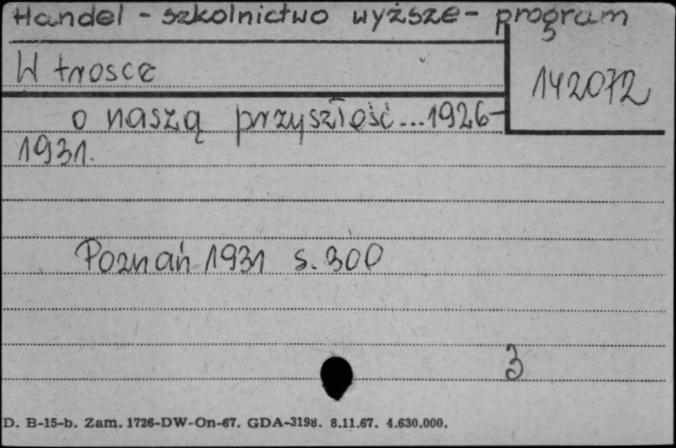 Handel - szkolnictwo wyższe - program
W trosce
142072
o naszą przyszłość...1926-
1931.
Poznań 1931 s. 300
3
D. B-15-b. Zam. 1726-DW-On-67. GDA-3198. 8.11.67. 4.630.000.